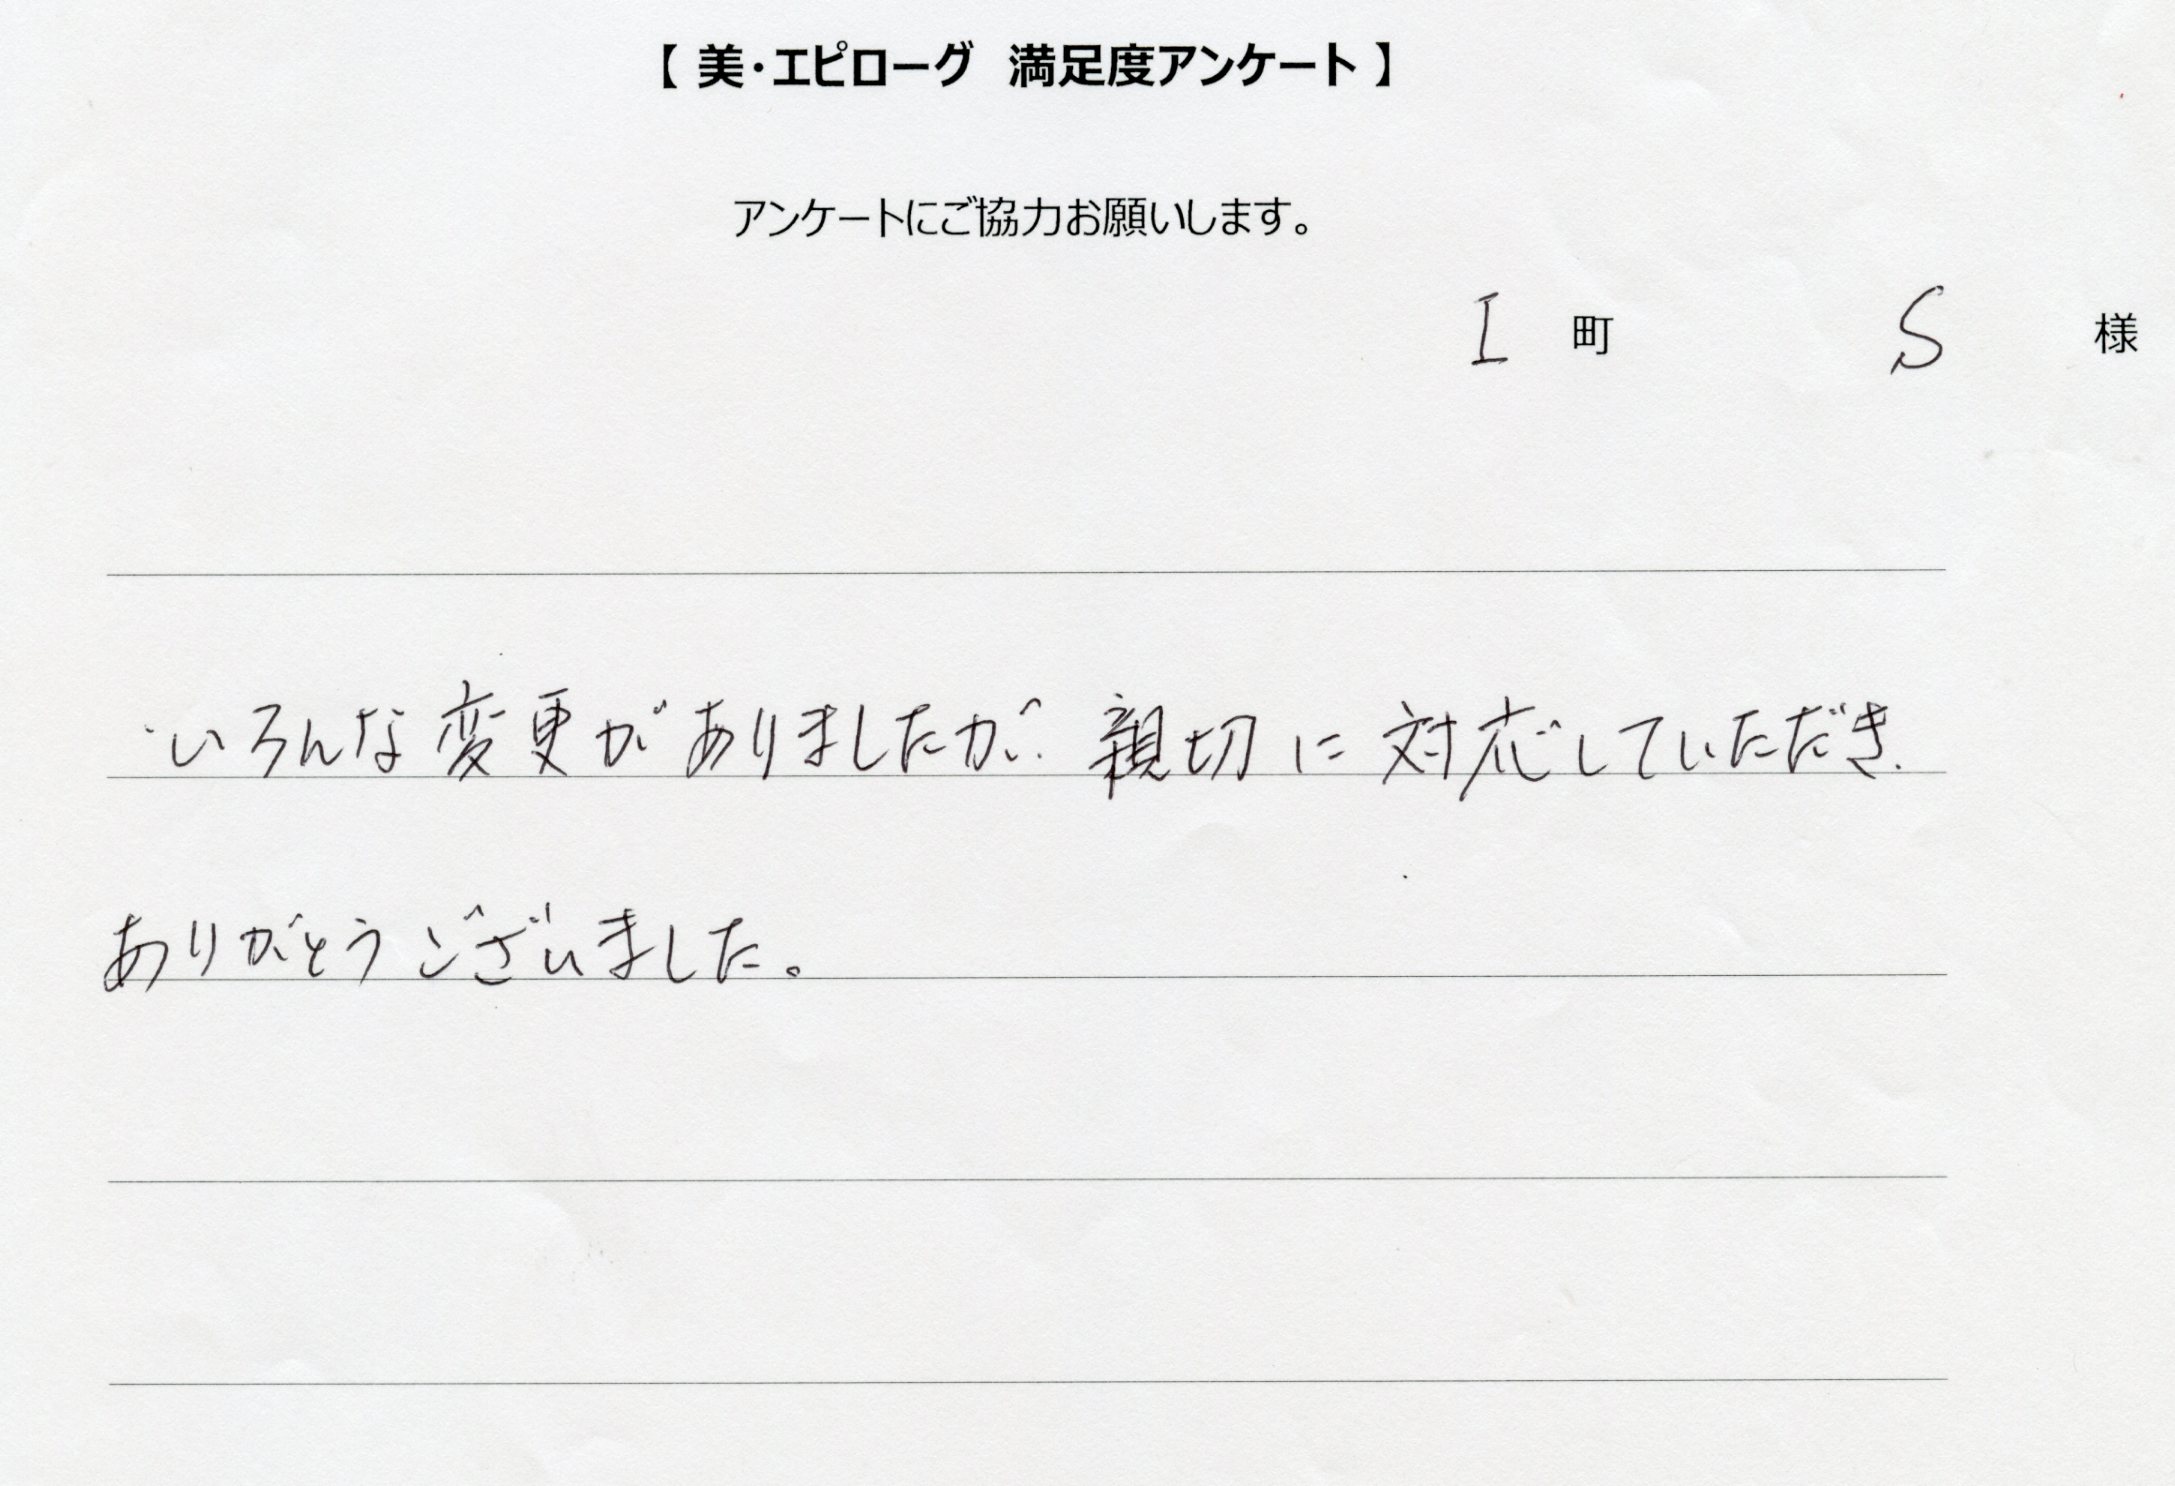 【 美・エピローグ 満足度アンケート 】
アンケートにご協力お願いします。
I 町 S 様
いろんな変更がありましたが、親切に対応していただき、
ありがとうございました。